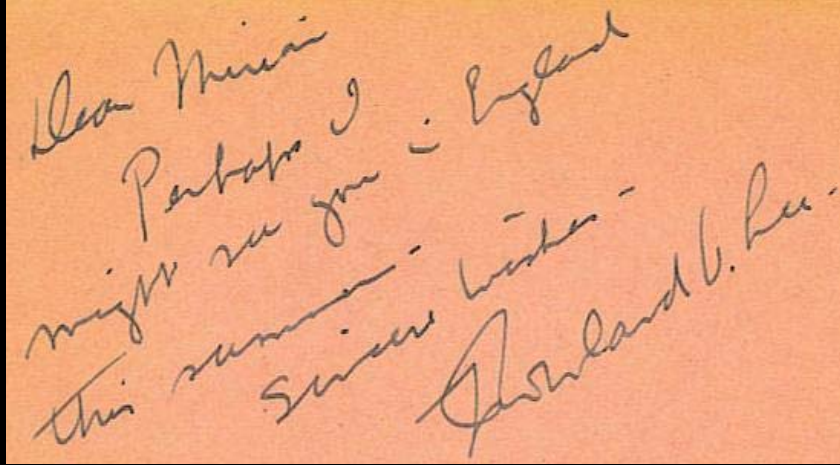 Dear Miriam
Perhaps I
might see you in England
this summer.
Sincere wishes -
Rowland V. Lee.